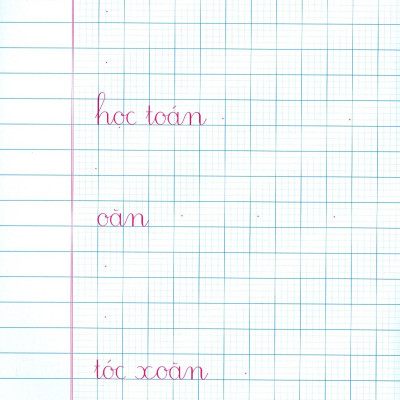 học toán
oăn
tóc xoăn